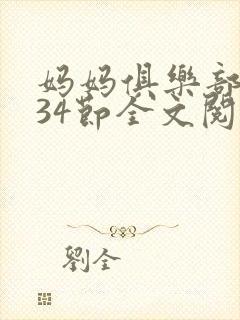 妈妈俱樂部
34節全文閱
劉全